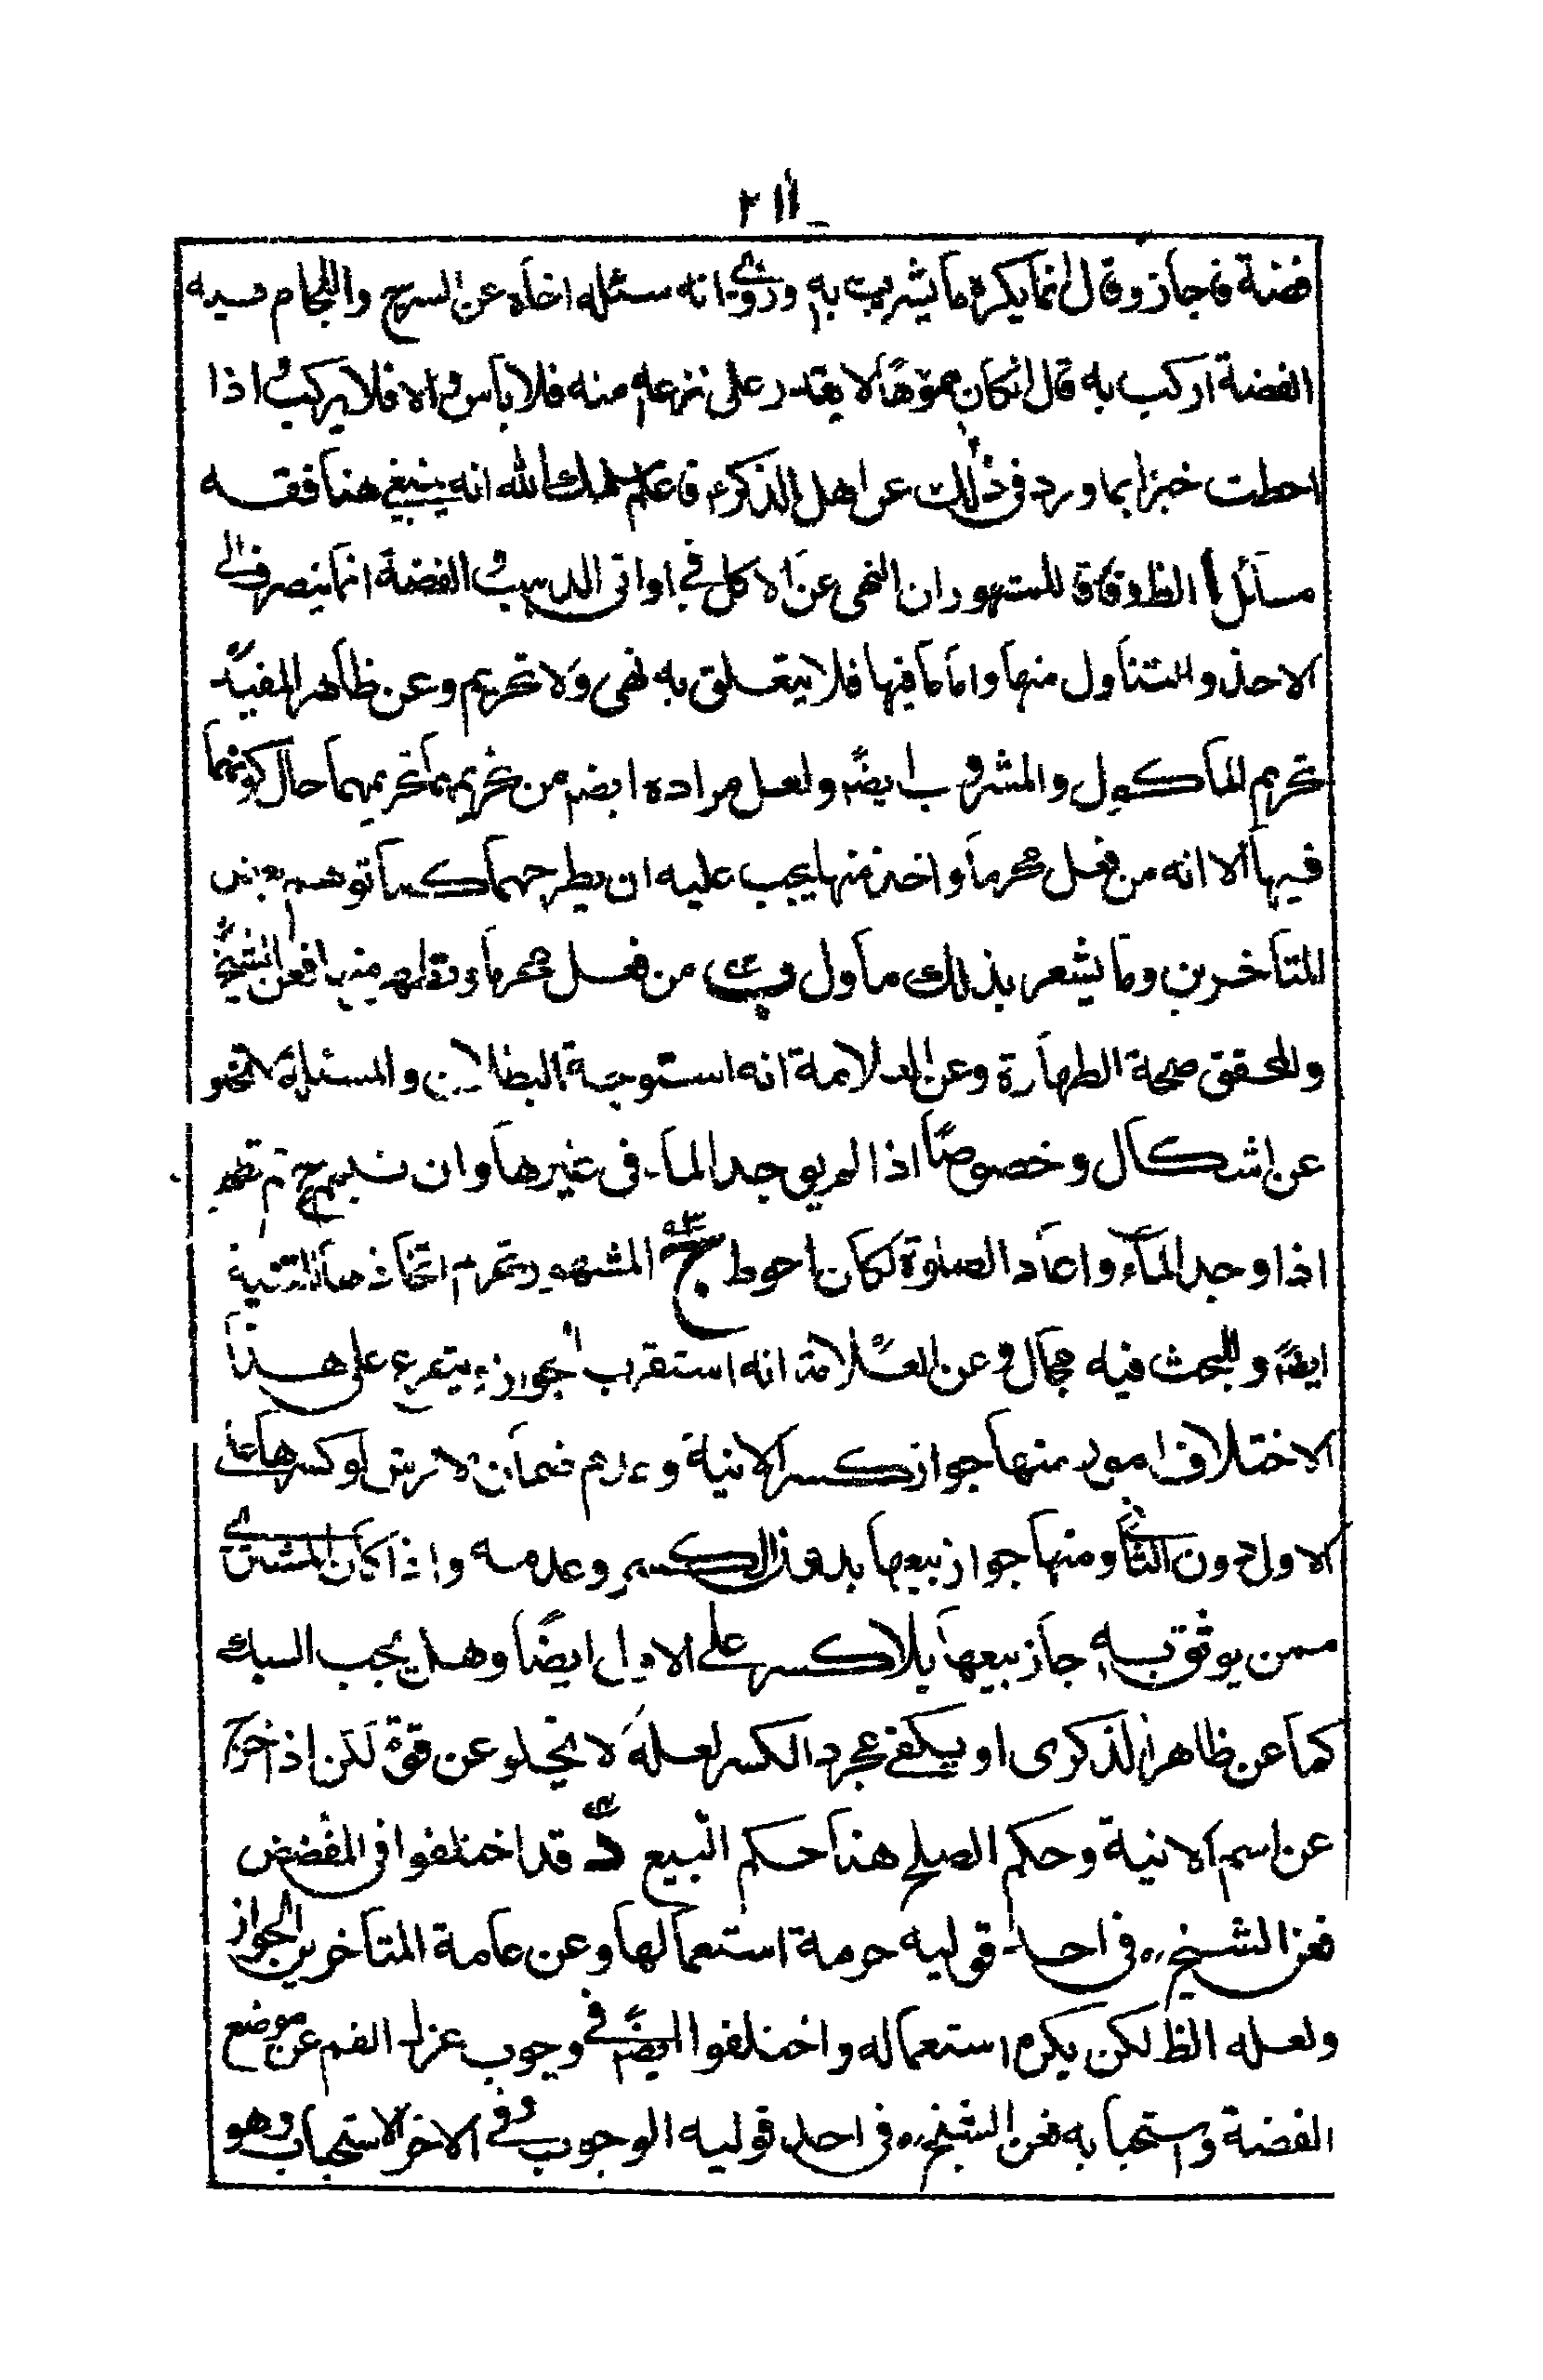 ٢١١
فضة فاجاز وقال انما يكره ما يشرب به وروى انه سئله اخاه عن السرج واللجام فيه
الفضة اركب به قال ان كان مموهًا لا يقدر على نزعه منه فلا باس والا فلا يركب اذا
احطت خبرا بما ورد في ذلك عن اهل الذكر فاعلم سلمك الله انه ينبغي هنا فقه
مسائل ا الظ وفاقا للمشهور ان النهى عن الاكل في اواني الذهب والفضة انما ينصرف الى
الاخذ والتناول منها واما ما فيها فلا يتعلق به نهى ولا تحريم وعن ظاهر المفيد
تحريم الماكول والمشروب ايضًا ولعل مراده ايضا من تحريمهما تحريمهما حال كونهما
فيها الا انه من فعل محرما واخذ منها يجب عليه ان يطرحهما كما توهم بعض
المتاخرين وما يشعر بذلك ماول ب من فعل محرما وتطهر منها فعن الشيخ
والمحقق صحة الطهارة وعن العلامة انه استوجه البطلان والمسئلة لا تخلو
عن اشكال وخصوصًا اذا لم يوجد الماء في غيرها وان تيمم ثم تطهر
اذا وجد الماء واعاد الصلوة لكان احوط ج المشهور تحريم اتخاذها للقنية
ايضًا وللبحث فيه مجال وعن العلامة انه استقرب الجواز ويتفرع على هذا
الاختلاف امور منها جواز كسر الانية وعدم ضمان الارش لو كسرها على
الاول دون الثاني ومنها جواز بيعها بدون الكسر وعدمه واذا كان المشترى
ممن يوثق به جاز بيعها بلا كسر على الاول ايضًا وهل يجب السبك
كما عن ظاهر الذكرى او يكفى مجرد الكسر لعله لا يخلو عن قوة لكن اذا خرج
عن اسم الانية وحكم الصلح هنا حكم البيع د قد اختلفوا في المفضض
فعن الشيخ في احد قوليه حرمة استعمالها وعن عامة المتاخرين الجواز
ولعله الظ لكن يكره استعماله واختلفوا ايضًا في وجوب عزل الفم عن موضع
الفضة واستحبابه فعن الشيخ في احد قوليه الوجوب وفي الاخر الاستحباب وهو